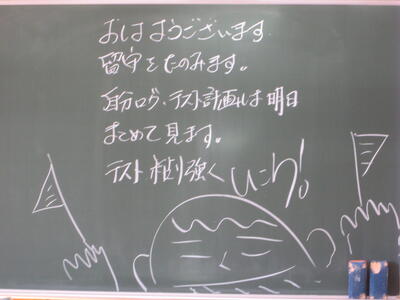 おはようございます
留守をたのみます。
自分ログ・テスト計画は明日
まとめて見ます。
テスト勉強く